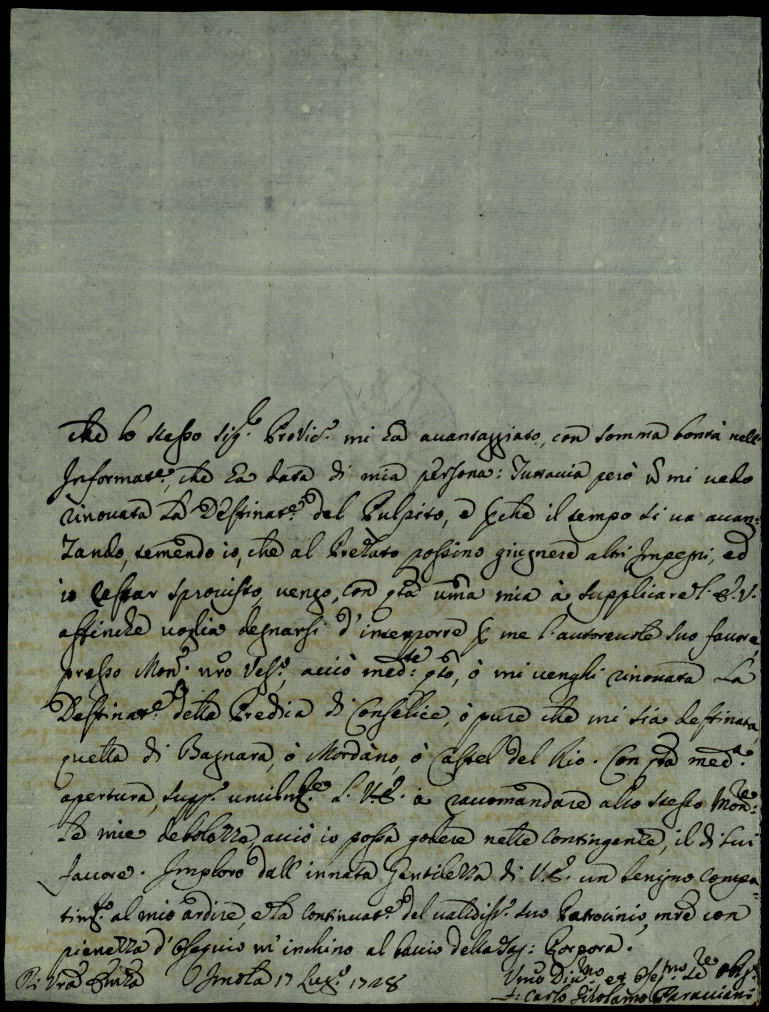 che lo stesso Sig.r Provic.o mi ha avantaggiato, con somma bontà nell'
Informat.e, che ha data di mia persona: Tuttavia però ñ mi vedo
rinovata la Destinat.e del Pulpito, e perche il tempo si va avan=
zando, temendo io, che al Prelato possino giugnere altri Impegni, ed
io restar sprovisto, vengo, con pñta umã mia à supplicare
affinche voglia degnarsi d'interporre per me l'autorevole suo favore,
presso Mon.r vro Ves.o, acciò med.te pto, ò mi venghi rinovata la
Destinat.e della Predica di Conselice, ò pure che mi sia destinata
quella di Bagnara, ò Mordano, ò Castel del Rio. Con med.a
apertura, supp.o umilm.te V.S. à raccomandare allo stesso Mon.re
le mie debolezze, acciò io possa godere nelle contingenze, il di lui
favore. Imploro dall'innata Gentilezza di V.S. un benigno compa=
tim.to al mio ardire, e la continuat.e del validiss.o suo Patrocinio, mẽ con
pienezza d'ossequio m'inchino al bacio della Sag: Porpora.
Di Vrã Imola 17 Lug.o 1728
Umõ Di.mo ed Obl.mo
F: Carlo Girolamo Paracciani